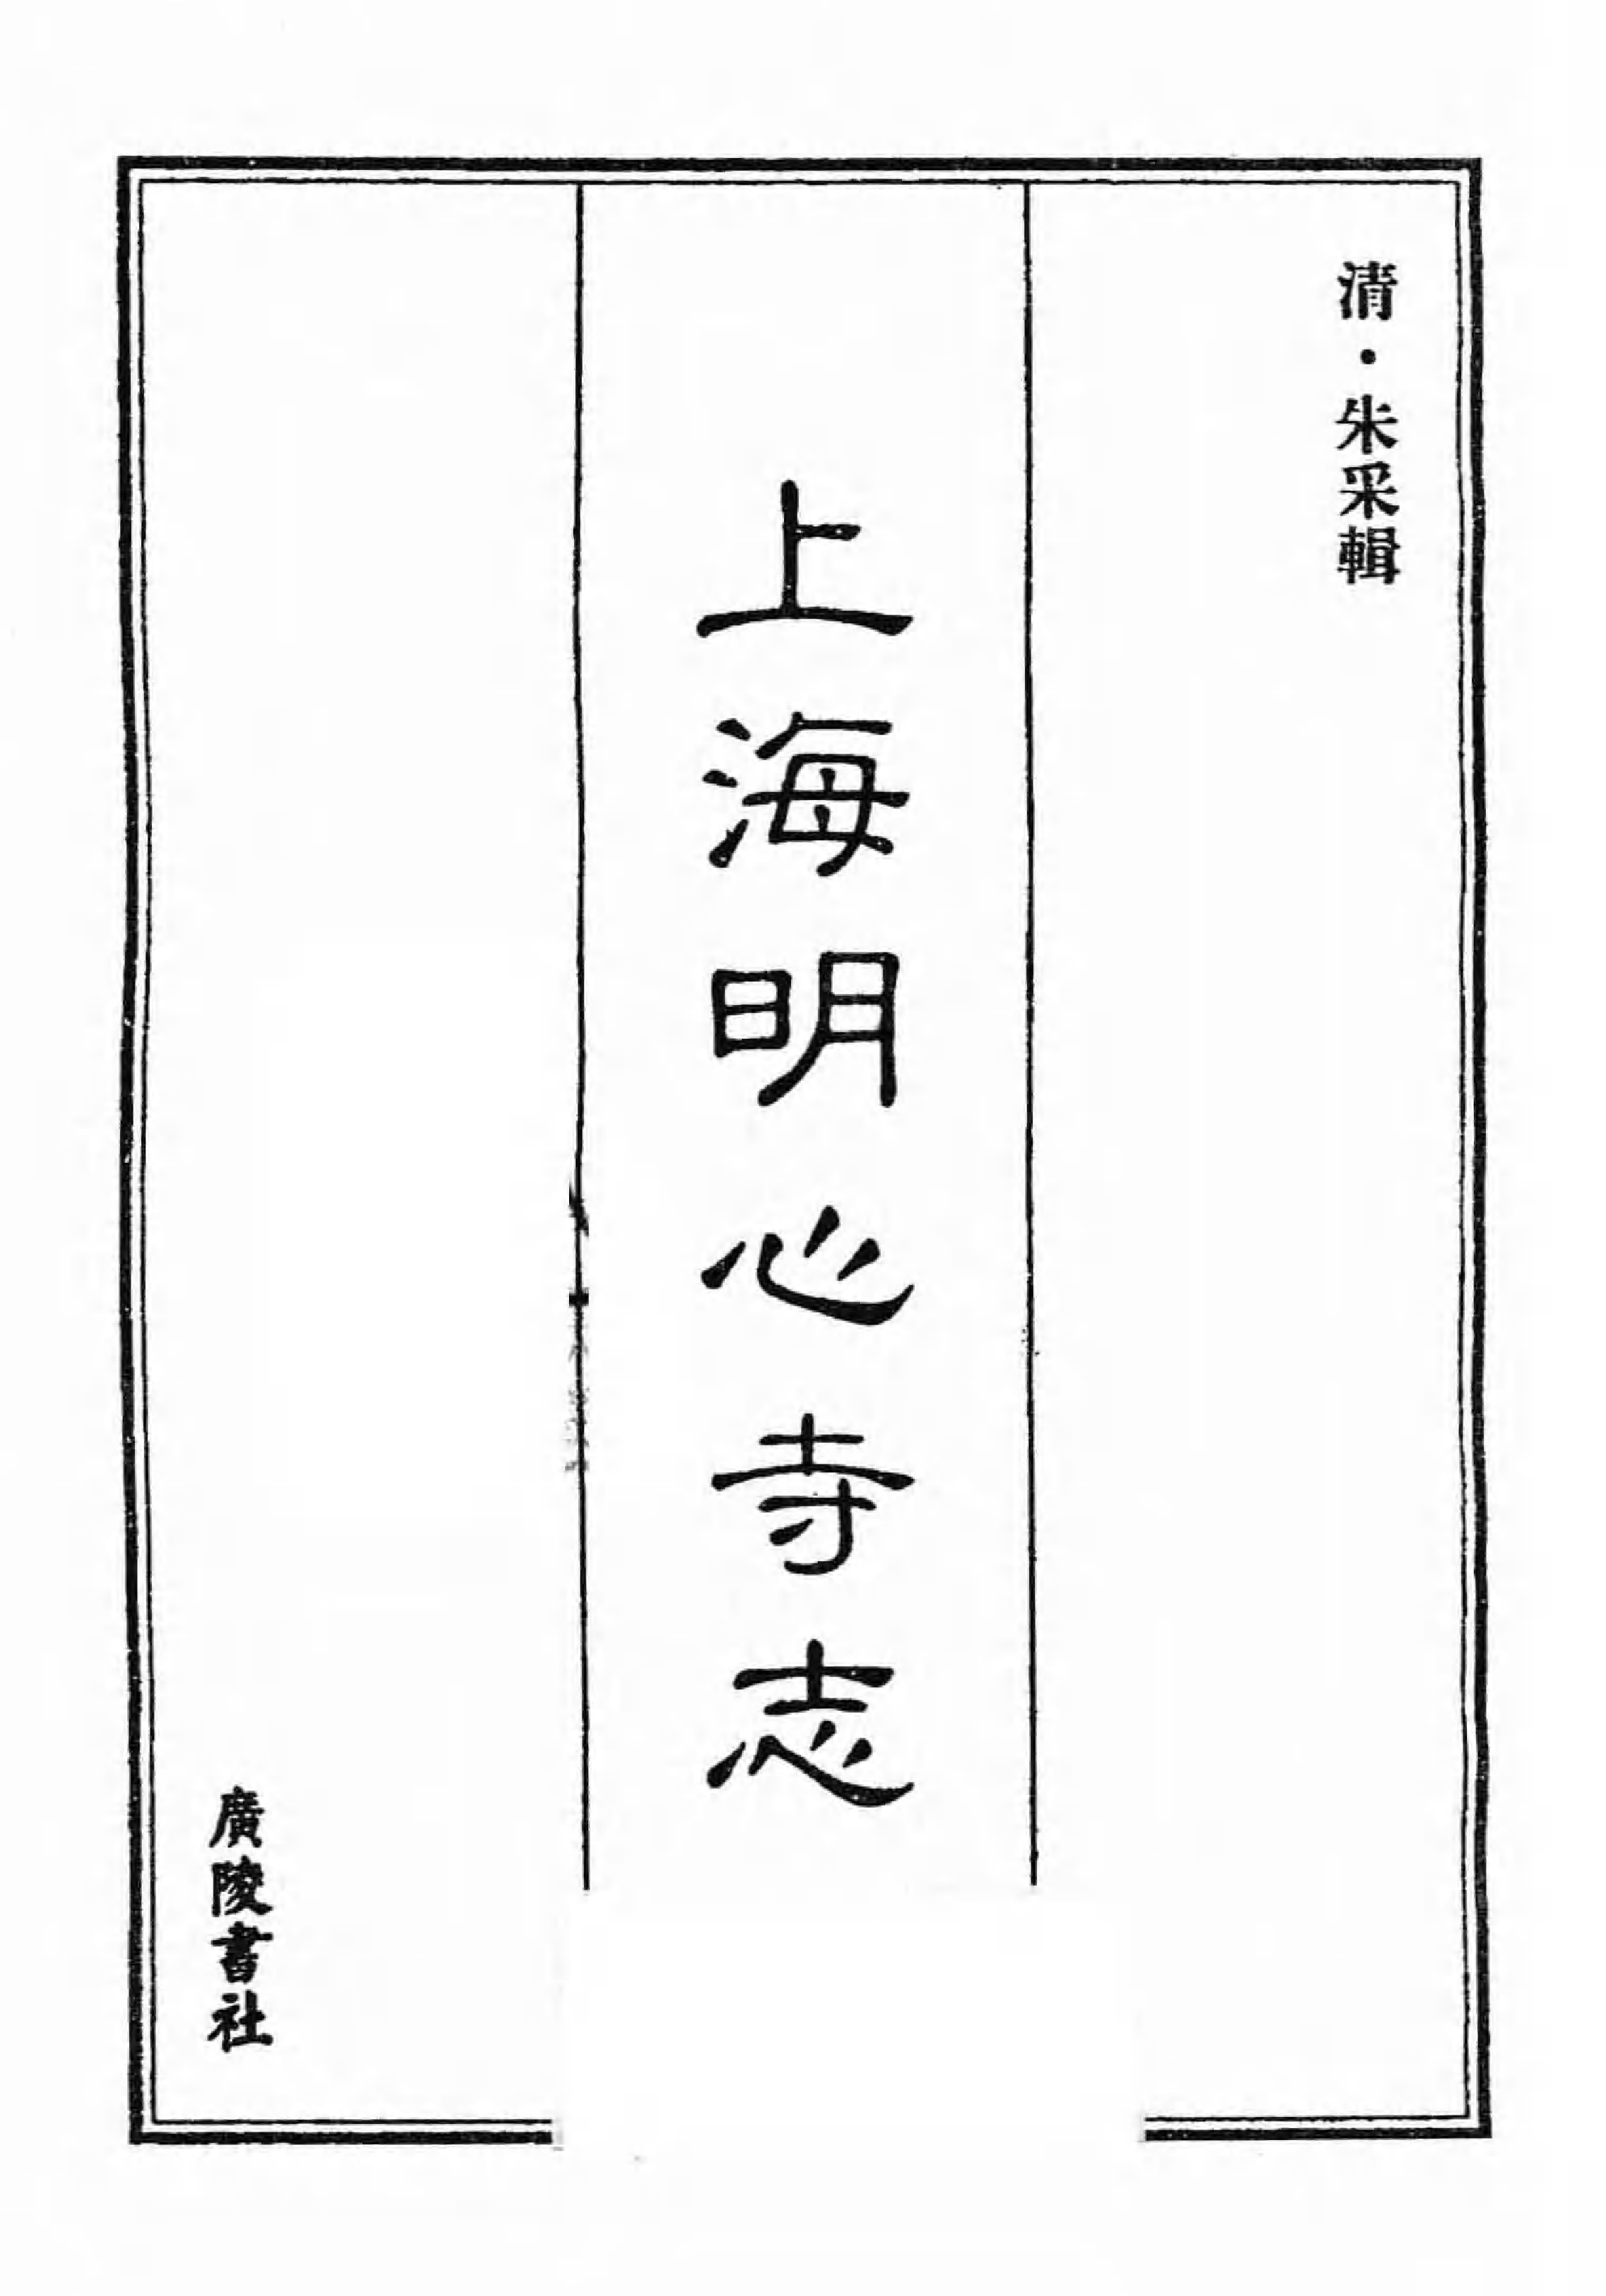 清·朱采輯
上海明心寺志
廣陵書社